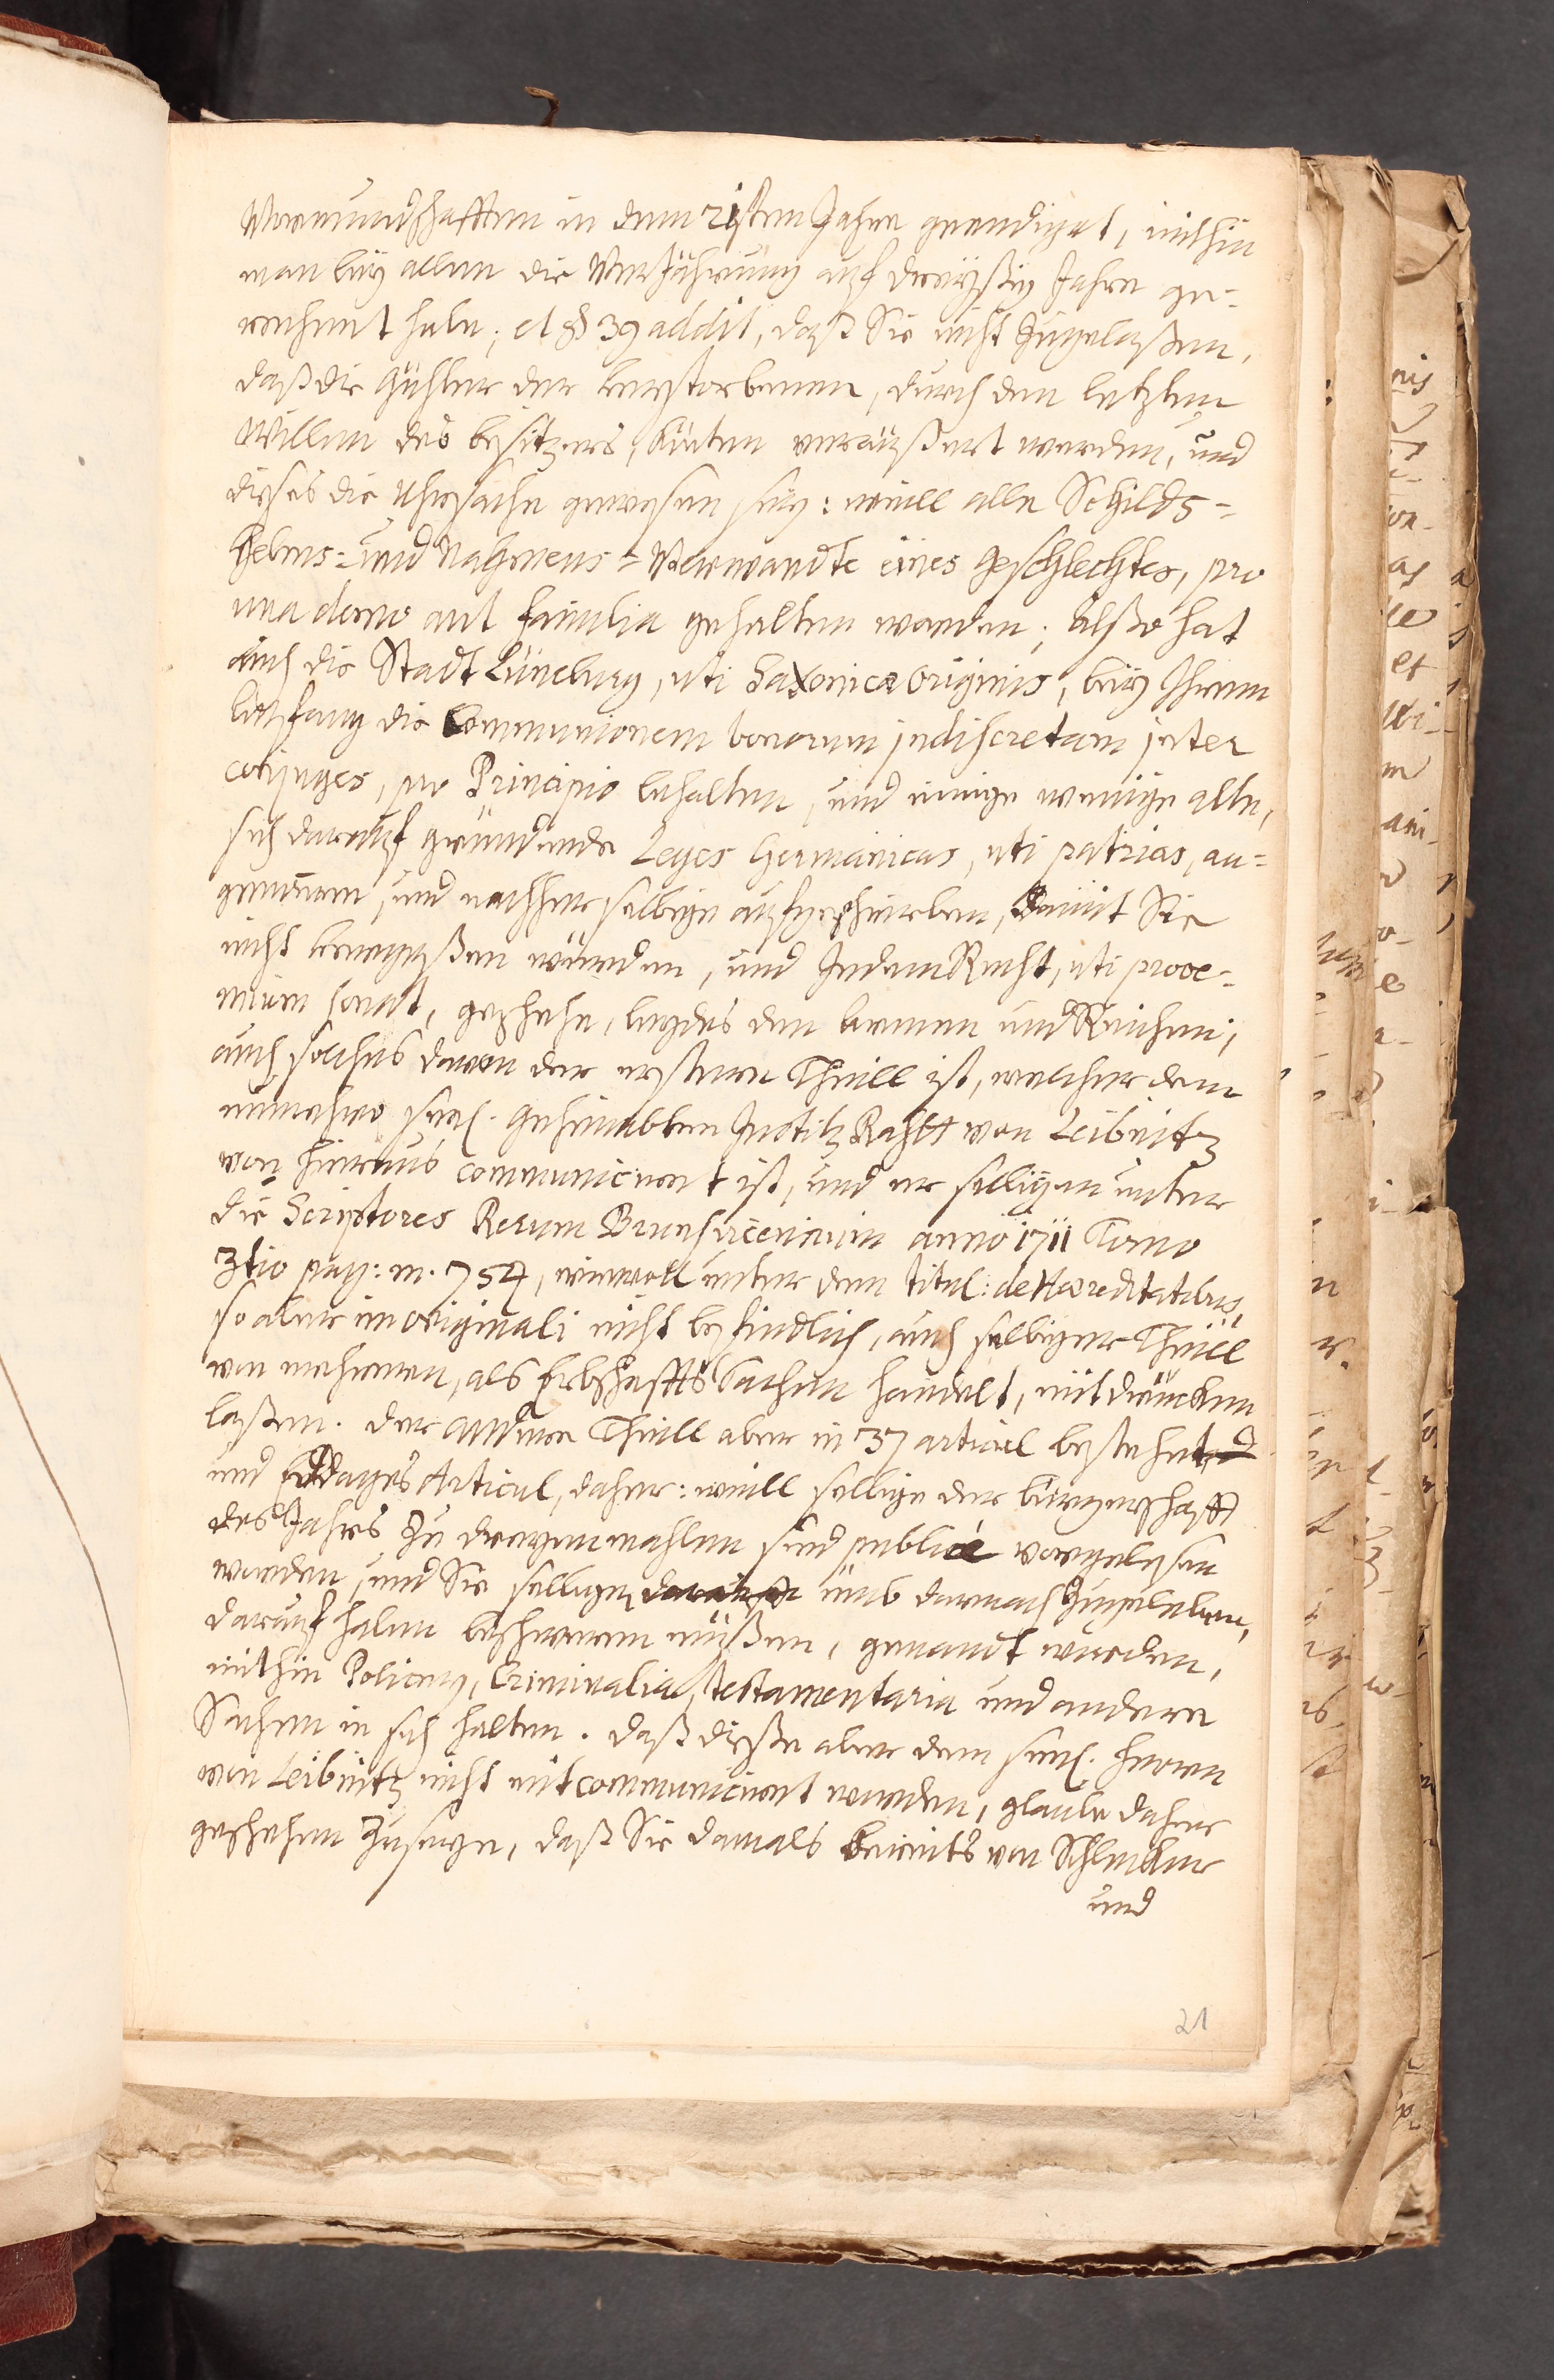 Vormundschafften in dem 21sten Jahre geendiget, mithin
man bey allen die Verjährung auf dreyßig Jahre ge-
rechnet habe; et § 39 addit, daß Sie nicht zugelaßen,
daß die Gühter der verstorbenen, durch den letzten
Willen des besitzers, könten veräußert werden, und
dieses die Uhrsache gewesen sey: weill alle Schilds-
helms- und Nahmens-Verwandte eines geschlechtes, pro
una domo aut familia gehalten worden; Alßo hat
auch die Stadt Lüneburg, uti Saxonicæ Originis, bey Ihrem
anfang die Communionem bonorum indiscretam inter
conjuges, pro Principio behalten, und einige wenige alte,
sich darauf gründende Leges Germanicas, uti patrias, an-
genommen, und nachher selbige aufgeschrieben, damit Sie
nicht vergeßen würden, und Jedem Recht, uti prooe-
mium sonat, geschehe, beydes den Armen und Reichen;
auch solches davon der erstere Theill ist, welcher dem
nunmehro seel. Geheimbten Justitz Raht von Leibnitz
von hieraus communiciret ist, und er selbigen unter
die Scriptores Rerum Brunsvicensium anno 1711 Tomo
3tio pag: m. 754, wiewoll unter dem titul: de Hæreditatibus,
so aber in originali nicht befindlich, auch selbiger Theill
von mehreren, als Erbschaffts Sachen handelt, mit drücken
laßen. Der Andere Theill aber in 37 articul bestehet
und Eddages Articul, daher: weill selbige der bürgerschafft
des Jahrs zu dreyenmahlen sind publicè vorgelesen
worden, und Sie selbige, darauff ümb darnach zugeleben,
darauf haben beschweren müßen, genandt wurden,
mithin Policey, Criminalia, testamentaria und andere
Sachen in sich halten. Daß diese aber dem seel. Herren
von Leibnitz nicht mit communiciret worden, glaube daher
geschehen zuseyn, daß Sie damals bereits von Schlucker
und
21